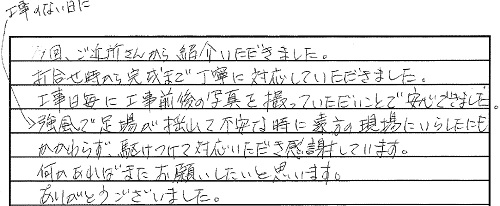 工事のない日に
今回、ご近所さんから紹介いただきました。
打合せ時から完成まで丁寧に対応していただきました。
工事日毎に工事前後の写真を撮っていただいことで安心できました。
強風で足場が揺れて不安な時に遠方の現場にいらしたにも
かかわらず、駆けつけて対応いただき感謝しています。
何かあればまたお願いしたいと思います。
ありがとうございました。